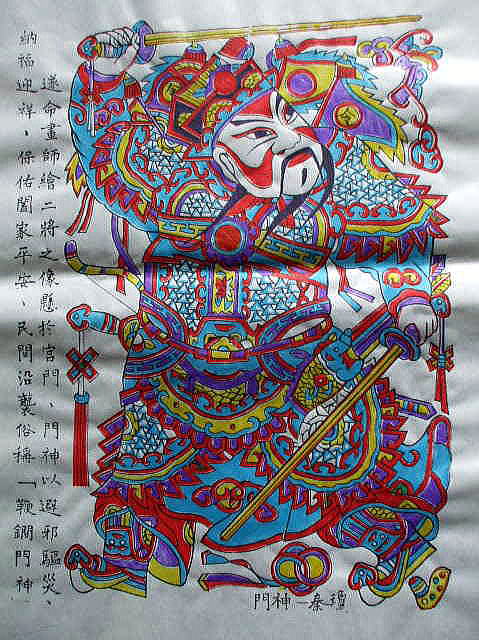 遂命畫師繪二將之像懸於宮門、門神以避邪驅災、
納福迎祥，保佑闔家平安、民間沿襲俗稱「鞭鐧門神
門神—秦瓊